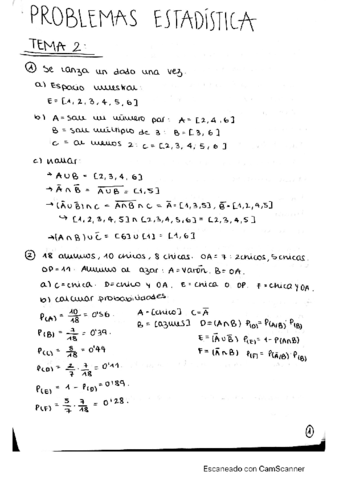 PROBLEMAS ESTADÍSTICA
TEMA 2:
① Se lanza un dado una vez.
a) Espacio muestral
E = [1, 2, 3, 4, 5, 6]
b) A = sale un número par: A = [2, 4, 6]
B = sale múltiplo de 3: B = [3, 6]
C = al menos 2: C = [2, 3, 4, 5, 6]
c) Hallar:
→ A∪B = [2, 3, 4, 6]
→ A̅∩B̅ = A̅∪̅B̅ = [1, 5]
→ (A̅∪B̅)∩C = A̅∩̅B̅ ∩ C = A̅ = [1, 3, 5], B̅ = [1, 2, 4, 5]
↳ [1, 2, 3, 4, 5] ∩ [2, 3, 4, 5, 6] = [2, 3, 4, 5]
→ (A∩B)∪C̅ = [6] ∪ [1] = [1, 6]
② 18 alumnos, 10 chicos, 8 chicas. OA = 7: 2 chicos, 5 chicas.
OP = 11. Alumno al azar: A = varón. B = OA.
a) C = chica. D = chico y OA. E = chica o OP. F = chica y OA
b) Calcular probabilidades
P(A) = 10/18 = 0'56 A = [chico] C = A̅
P(B) = 7/18 = 0'39. D = (A∩B) P(D) = P(A/B) · P(B)
P(C) = 8/18 = 0'44 E = (A̅∪B̅) P(E) = 1 - P(A∩B)
P(D) = 2/7 · 7/18 = 0'11. F = (A̅∩B) P(F) = P(A̅/B) · P(B)
P(E) = 1 - P(D) = 0'89.
P(F) = 5/7 · 7/18 = 0'28.
①
Escaneado con CamScanner